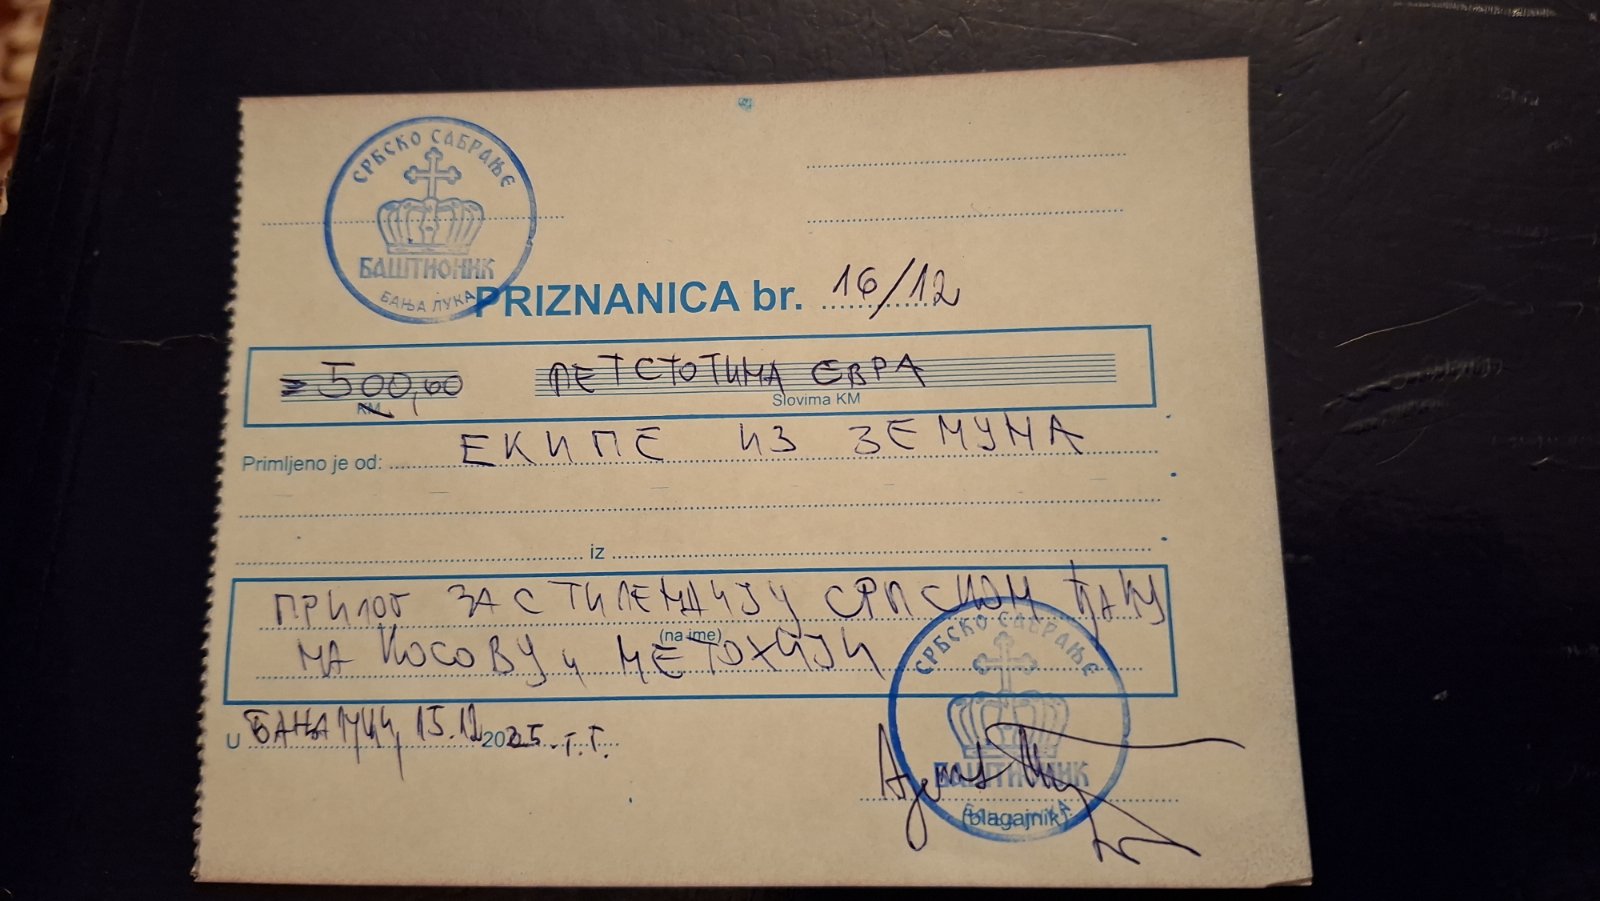 СРБСКО САБРАЊЕ
БАШТИОНИК
БАЊА ЛУКА
PRIZNANICA br. 16/12
=500,00 ПЕТСТОТИНА ЕВРА
KM Slovima KM
Primljeno je od: ЕКИПЕ ИЗ ЗЕМУНА
iz
ПРИЛОГ ЗА СТИПЕНДИЈУ СРПСКОМ ЂАКУ
(na ime)
НА КОСОВУ и МЕТОХИЈИ
U БАЊА ЛУЦИ, 15.12.2025. г.г.
СРБСКО САБРАЊЕ
БАШТИОНИК
(blagajnik)